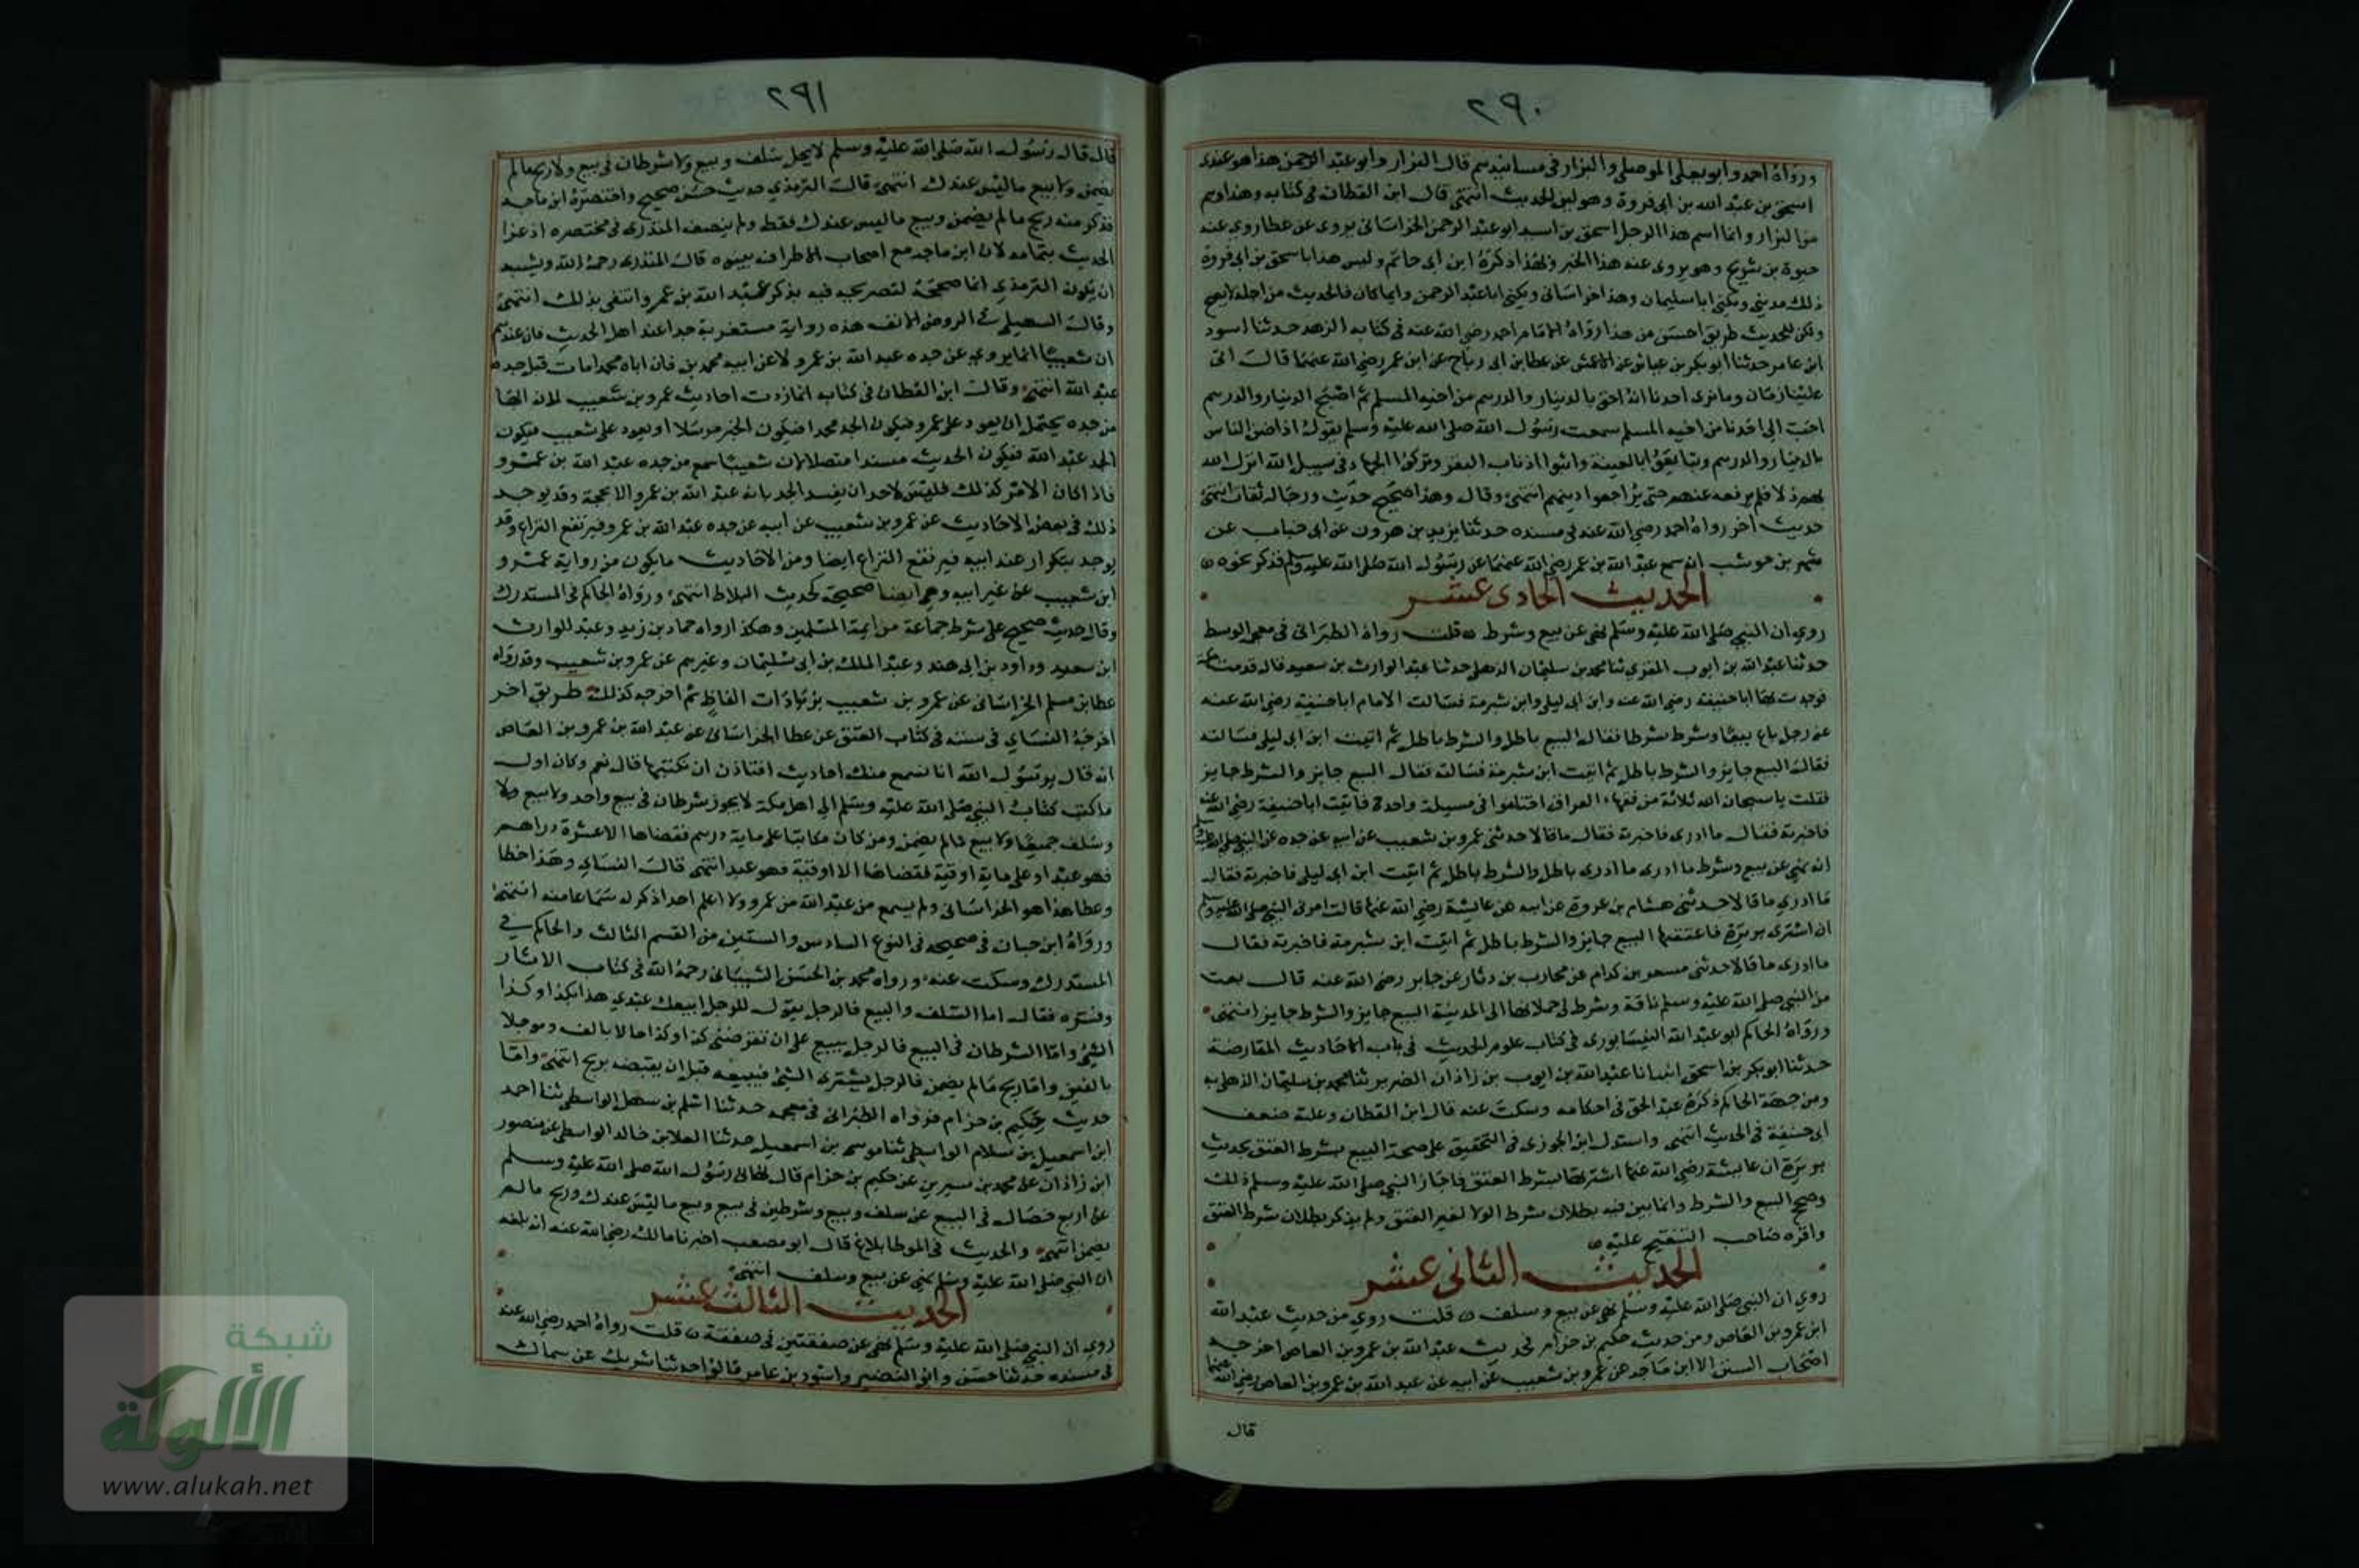 ٢٩٠
ورواه احمد وابو يعلى الموصلي والبزار في مسانيدهم قال البزار وابو عبد الرحمن هذا هو عندى
اسحق بن عبد الله بن ابي فروة وهو لين الحديث انتهى قال ابن القطان في كتابه وهذا وهم
من البزار وانما اسم هذا الرجل اسحق بن اسيد ابو عبد الرحمن الخراسانى يروى عن عطا روى عنه
حيوة بن شريح وهو يروى عنه هذا الخبر وبهذا ذكره ابن ابي حاتم وليس هذا باسحق بن ابي فروة
ذلك مدينى ويكنى ابا سليمان وهذا خراسانى ويكنى ابا عبد الرحمن وايما كان فالحديث من اجله لا يصح
ولكن للحديث طريق احسن من هذا رواه الامام احمد رضي الله عنه في كتابه الزهد حدثنا اسود
ابن عامر حدثنا ابو بكر بن عياش عن الاعمش عن عطا بن ابي رباح عن ابن عمر رضي الله عنهما قال اتى
علينا زمان وما نرى احدنا انه احق بالدينار والدرهم من اخيه المسلم ثم اصبح الدينار والدرهم
احب الى احدنا من اخيه المسلم سمعت رسول الله صلى الله عليه وسلم يقول اذا ضن الناس
بالدينار والدرهم وتبايعوا بالعينة واتبعوا اذناب البقر وتركوا الجهاد في سبيل الله انزل الله
بهم ذلا فلم يرفعه عنهم حتى يراجعوا دينهم انتهى وقال وهذا صحيح حديث ورجاله ثقات انتهى
حديث اخر رواه احمد رضي الله عنه في مسنده حدثنا يزيد بن هرون عن ابي جناب عن
شهر بن حوشب انه سمع عبد الله بن عمر رضي الله عنهما عن رسول الله صلى الله عليه وسلم فذكر نحوه
الحديث الحادى عشر
روي ان النبي صلى الله عليه وسلم نهى عن بيع وشرط قلت رواه الطبرانى في معجمه الوسط
حدثنا عبد الله بن ايوب المقرى ثنا محمد بن سليمان الذهلى حدثنا عبد الوارث بن سعيد قال قدمت مكة
فوجدت بها ابا حنيفة رضي الله عنه وابن ابي ليلى وابن شبرمة فسالت الامام ابا حنيفة رضي الله عنه
عن رجل باع بيعا وشرط شرطا فقال البيع باطل والشرط باطل ثم اتيت ابن ابي ليلى فسالته
فقال البيع جايز والشرط باطل ثم اتيت ابن شبرمة فسالته فقال البيع جايز والشرط جايز
فقلت يا سبحان الله ثلاثة من فقهاء العراق اختلفوا في مسيلة واحدة فاتيت ابا حنيفة رضي الله عنه
فاخبرته فقال ما ادرى فاخبرته فقال ما قالا حدثنى عمرو بن شعيب عن ابيه عن جده عن النبي صلى الله عليه وسلم
انه نهى عن بيع وشرط ما ادرى ما ادرى باطل والشرط باطل ثم اتيت ابن ابي ليلى فاخبرته فقال
ما ادرى ما قالا حدثنى هشام بن عروة عن ابيه عن عايشة رضي الله عنها قالت امرنى النبي صلى الله عليه وسلم
ان اشترى بريرة فاعتقها البيع جايز والشرط باطل ثم اتيت ابن شبرمة فاخبرته فقال
ما ادرى ما قالا حدثنى مسعر بن كدام عن محارب بن دثار عن جابر رضي الله عنه قال بعت
من النبي صلى الله عليه وسلم ناقة وشرط لى حملانها الى المدينة البيع جايز والشرط جايز انتهى
ورواه الحاكم ابو عبد الله النيسابورى في كتاب علوم الحديث في باب الاحاديث المقارضة
حدثنا ابو بكر بن اسحق انبانا عبد الله بن ايوب بن زاذان الضرير ثنا محمد بن سليمان الذهلى به
ومن جهة الحاكم ذكره عبد الحق في احكامه وسكت عنه قال ابن القطان وعلته ضعف
ابي حنيفة في الحديث انتهى واستدل ابن الجوزى في التحقيق على صحة البيع بشرط العتق بحديث
بريرة ان عايشة رضي الله عنها اشترتها بشرط العتق فاجاز النبي صلى الله عليه وسلم ذلك
وصح البيع والشرط وانما بين فيه بطلان شرط الولا لغير العتق ولم يذكر بطلان شرط العتق
واقره صاحب التنقيح عليه
الحديث الثانى عشر
روي ان النبي صلى الله عليه وسلم نهى عن بيع وسلف قلت روي من حديث عبد الله
ابن عمرو بن العاص ومن حديث حكيم بن حزام فحديث عبد الله بن عمرو بن العاص اخرجه
اصحاب السنن الا ابن ماجه عن عمرو بن شعيب عن ابيه عن عبد الله بن عمرو بن العاص رضي الله عنهما
قال
٢٩١
قال قال رسول الله صلى الله عليه وسلم لا يحل سلف وبيع ولا شرطان في بيع ولا ربح ما لم
يضمن ولا بيع ما ليس عندك انتهى قال الترمذي حديث حسن صحيح واختصره ابن ماجه
فذكر منه ربح ما لم يضمن وبيع ما ليس عندك فقط ولم ينصف المنذرى في مختصره اذ عزا
الحديث بتمامه لان ابن ماجه مع اصحاب الاطراف بينوه قال المنذرى رحمه الله ويشبه
ان يكون الترمذي انما صححه لتصريحه فيه بذكر عبد الله بن عمرو وانتفى بذلك انتهى
وقال السهيلى في الروض الانف هذه رواية مستغربة جدا عند اهل الحديث فان عندهم
ان شعيبا انما يروي عن جده عبد الله بن عمرو لا عن ابيه محمد بن فان اباه محمد امات قبل جده
عبد الله انتهى وقال ابن القطان في كتابه انما ردت احاديث عمرو بن شعيب لان الها
من جده يحتمل ان يعود على عمرو فيكون الجد محمدا فيكون الخبر مرسلا او يعود على شعيب فيكون
الجد عبد الله فيكون الحديث مسندا متصلا لان شعيبا سمع من جده عبد الله بن عمرو
فاذا كان الامر كذلك فليس لاحد ان يفسر الجد بانه عبد الله بن عمرو الا بحجة وقد يوجد
ذلك في بعض الاحاديث عن عمرو بن شعيب عن ابيه عن جده عبد الله بن عمرو فيرتفع النزاع وقد
يوجد بتكرار عند ابيه فيرتفع النزاع ايضا ومن الاحاديث ما يكون من رواية عمرو
ابن شعيب عن غير ابيه وهى ايضا صحيحة كحديث البلاط انتهى ورواه الحاكم في المستدرك
وقال حديث صحيح على شرط جماعة من ايمة المسلمين وهكذا رواه حماد بن زيد وعبد الوارث
ابن سعيد وداود بن ابي هند وعبد الملك بن ابي سليمان وغيرهم عن عمرو بن شعيب وقد رواه
عطا بن مسلم الخراسانى عن عمرو بن شعيب بزيادات الفاظ ثم اخرجه كذلك طريق اخر
اخرجه النساي في سننه في كتاب العتق عن عطا الخراسانى عن عبد الله بن عمرو بن العاص
انه قال يرسول الله انا نسمع منك احاديث افتاذن ان نكتبها قال نعم وكان اول
ما كتب كتاب النبي صلى الله عليه وسلم الى اهل مكة لا يجوز شرطان في بيع واحد ولا بيع ولا
وسلف جميعا ولا بيع مالم يضمن ومن كان مكاتبا على ماية درهم فقضاها الا عشرة دراهم
فهو عبد او على ماية اوقية فقضاها الا اوقية فهو عبد انتهى قال النساي وهذا خطا
وعطا هذا هو الخراسانى ولم يسمع من عبد الله بن عمرو ولا اعلم احدا ذكر له سماعا منه انتهى
ورواه ابن حبان في صحيحه في النوع السادس والستين من القسم الثالث والحاكم في
المستدرك وسكت عنه ورواه محمد بن الحسن الشيبانى رحمه الله في كتاب الاثار
وفسره فقال اما السلف والبيع فالرجل يقول للرجل ابيعك عبدي هذا بكذا وكذا
الشئ واما الشرطان في البيع فالرجل يبيع على ان تقرضنى كذا وكذا حالا بالف وموجلا
بالفين واما ربح ما لم يضمن فالرجل يشترى الشئ فيبيعه قبل ان يقبضه بربح انتهى واما
حديث حكيم بن حزام فرواه الطبرانى في معجمه حدثنا اسلم بن سهل الواسطى ثنا احمد
ابن اسمعيل بن سلام الواسطى ثنا موسى بن اسمعيل حدثنا العلا بن خالد الواسطى عن منصور
ابن زاذان عن محمد بن سيرين عن حكيم بن حزام قال نهانى رسول الله صلى الله عليه وسلم
عن اربع خصال في البيع عن سلف وبيع وشرطين في بيع وبيع ما ليس عندك وربح ما لم
يضمن انتهى والحديث في الموطا بلاغ قال ابو مصعب اخبرنا مالك رضي الله عنه انه بلغه
ان النبي صلى الله عليه وسلم نهى عن بيع وسلف انتهى
الحديث الثالث عشر
روي ان النبي صلى الله عليه وسلم نهى عن صفقتين في صفقة قلت رواه احمد رضي الله عنه
في مسنده حدثنا حسن وابو النضير واسود بن عامر قالوا حدثنا شريك عن سماك
شبكة
الألوكة
www.alukah.net